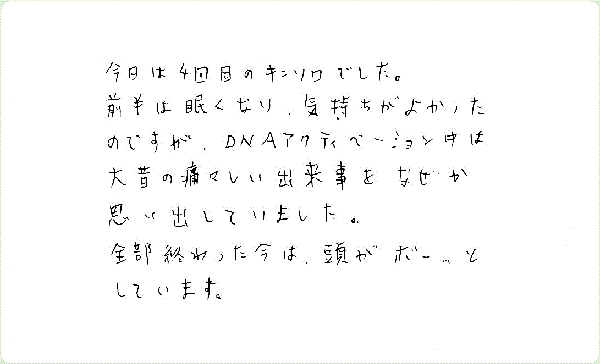 今日は4回目のキンソロでした。
前半は眠くなり、気持ちがよかった
のですが、DNAアクティベーション中は
大昔の痛々しい出来事をなぜか
思い出していました。
全部終わった今は、頭がボーっと
しています。